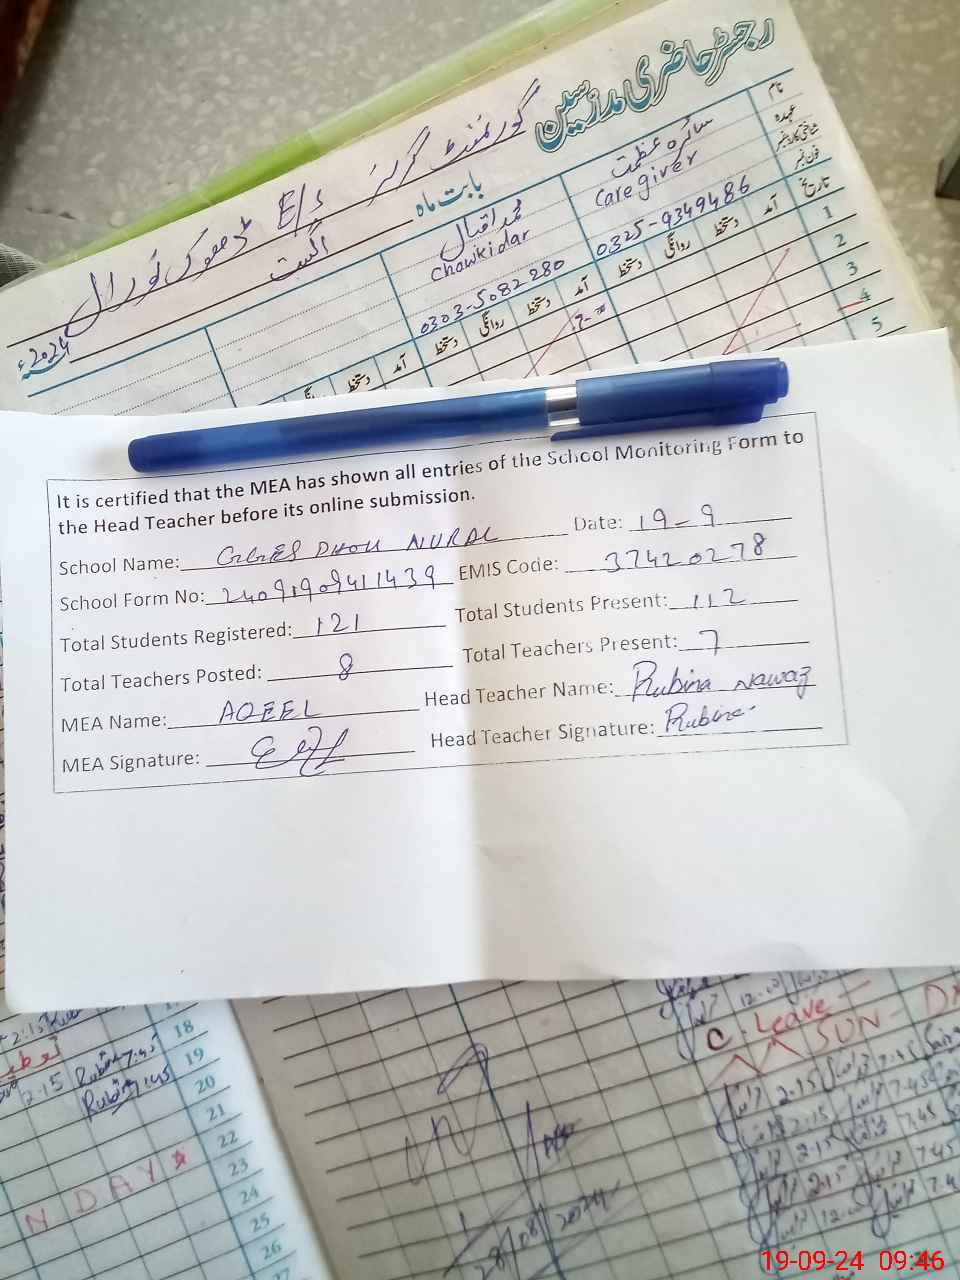 رجسٹر حاضری مدرسین
گورنمنٹ گرلز E/S ڈھوک نورال
بابت ماہ اگست ۲۰۲۴ء
نام
عہدہ
شناختی کارڈ نمبر
فون نمبر
سائرہ عظمت
Care giver
0325-9349486
محمد اقبال
Chowkidar
0303-5082280
تاریخ آمد دستخط روانگی دستخط آمد دستخط روانگی دستخط آمد دستخط
1
2
3
4
5
It is certified that the MEA has shown all entries of the School Monitoring Form to
the Head Teacher before its online submission.
School Name: GGES DHOK NURAL Date: 19-9
School Form No: 24091909411439 EMIS Code: 37420278
Total Students Registered: 121 Total Students Present: 112
Total Teachers Posted: 8 Total Teachers Present: 7
MEA Name: AQEEL Head Teacher Name: Rubina Nawaz
MEA Signature: Head Teacher Signature: Rubina
12.00
C. Leave
SUN - DA
2.15 7.45
2.15 7.45
2.15 7.45
2.15 7.45
12.00 7.4
2:15
18
2.15 Rubina 7:45 19
Rubina 7:45 20
21
22
N DAY 23
24
25
26
28/08/2024
19-09-24 09:46